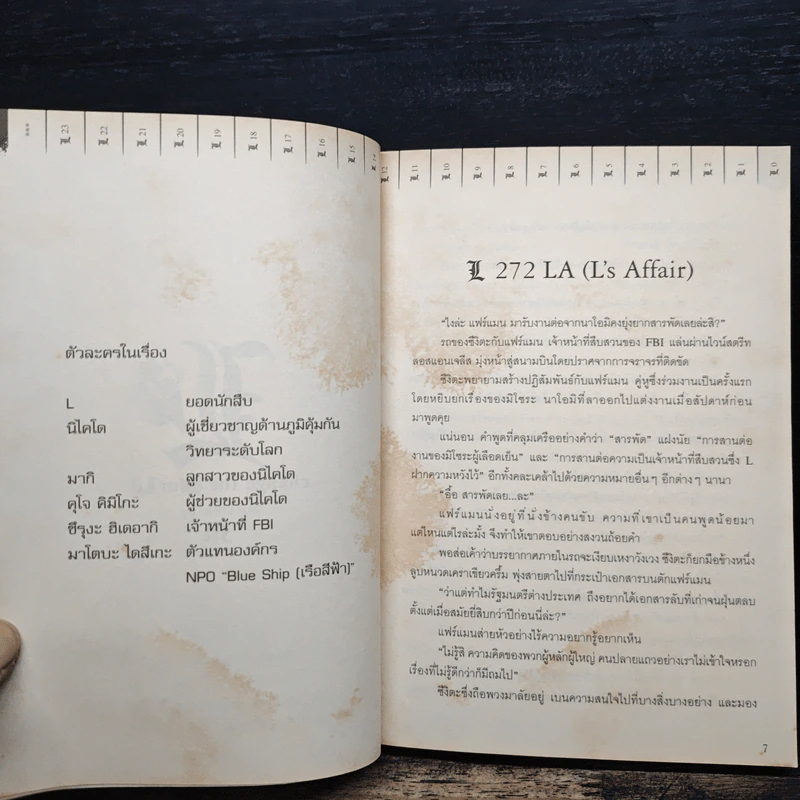 *** L 23 L 22 L 21 L 20 L 19 L 18 L 17 L 16 L 15 L 14
ตัวละครในเรื่อง
L ยอดนักสืบ
นิไคโด ผู้เชี่ยวชาญด้านภูมิคุ้มกัน
วิทยาระดับโลก
มากิ ลูกสาวของนิไคโด
คุโจ คิมิโกะ ผู้ช่วยของนิไคโด
ซึรุงะ ฮิเดอากิ เจ้าหน้าที่ FBI
มาโตบะ ไดสึเกะ ตัวแทนองค์กร
NPO "Blue Ship (เรือสีฟ้า)"
L 12 L 11 L 10 L 9 L 8 L 7 L 6 L 5 L 4 L 3 L 2 L 1 L 0
L 272 LA (L's Affair)
"ไงล่ะ แฟร์แมน มารับงานต่อจากนาโอมิคงยุ่งยากสารพัดเลยล่ะสิ?"
รถของซึงิตะกับแฟร์แมน เจ้าหน้าที่สืบสวนของ FBI แล่นผ่านไวน์สตรีท
ลอสแอนเจลีส มุ่งหน้าสู่สนามบินโดยปราศจากการจราจรที่ติดขัด
ซึงิตะพยายามสร้างปฏิสัมพันธ์กับแฟร์แมน คู่หูซึ่งร่วมงานเป็นครั้งแรก
โดยหยิบยกเรื่องของมิโซระ นาโอมิที่ลาออกไปแต่งงานเมื่อสัปดาห์ก่อน
มาพูดคุย
แน่นอน คำพูดที่คลุมเครืออย่างคำว่า "สารพัด" แฝงนัย "การสานต่อ
งานของมิโซระผู้เลือดเย็น" และ "การสานความเป็นเจ้าหน้าที่สืบสวนซึ่ง L
ฝากความหวังไว้" อีกทั้งคละเคล้าไปด้วยความหมายอื่นๆ อีกต่างๆ นานา
"อื้อ สารพัดเลย...ละ"
แฟร์แมนนั่งอยู่ที่นั่งข้างคนขับ ความที่เขาเป็นคนพูดน้อยมา
แต่ไหนแต่ไรล่ะมั้ง จึงทำให้เขาตอบอย่างสงวนถ้อยคำ
พอส่อเค้าว่าบรรยากาศภายในรถจะเงียบเหงาวังเวง ซึงิตะก็ยกมือข้างหนึ่ง
ลูบหนวดเคราเขียวครึ้ม พุ่งสายตาไปที่กระเป๋าเอกสารบนตักแฟร์แมน
"ว่าแต่ทำไมรัฐมนตรีต่างประเทศ ถึงอยากได้เอกสารลับที่เก่าจนฝุ่นตลบ
ตั้งแต่เมื่อสมัยยี่สิบกว่าปีก่อนนี่ล่ะ?"
แฟร์แมนส่ายหัวอย่างไร้ความอยากรู้อยากเห็น
"ไม่รู้สิ ความคิดของพวกผู้หลักผู้ใหญ่ คนปลายแถวอย่างเราไม่เข้าใจหรอก
เรื่องที่ไม่รู้ดีกว่าก็มีถมไป"
ซึงิตะซึ่งถือพวงมาลัยอยู่ เบนความสนใจไปที่บางสิ่งบางอย่าง และมอง
7